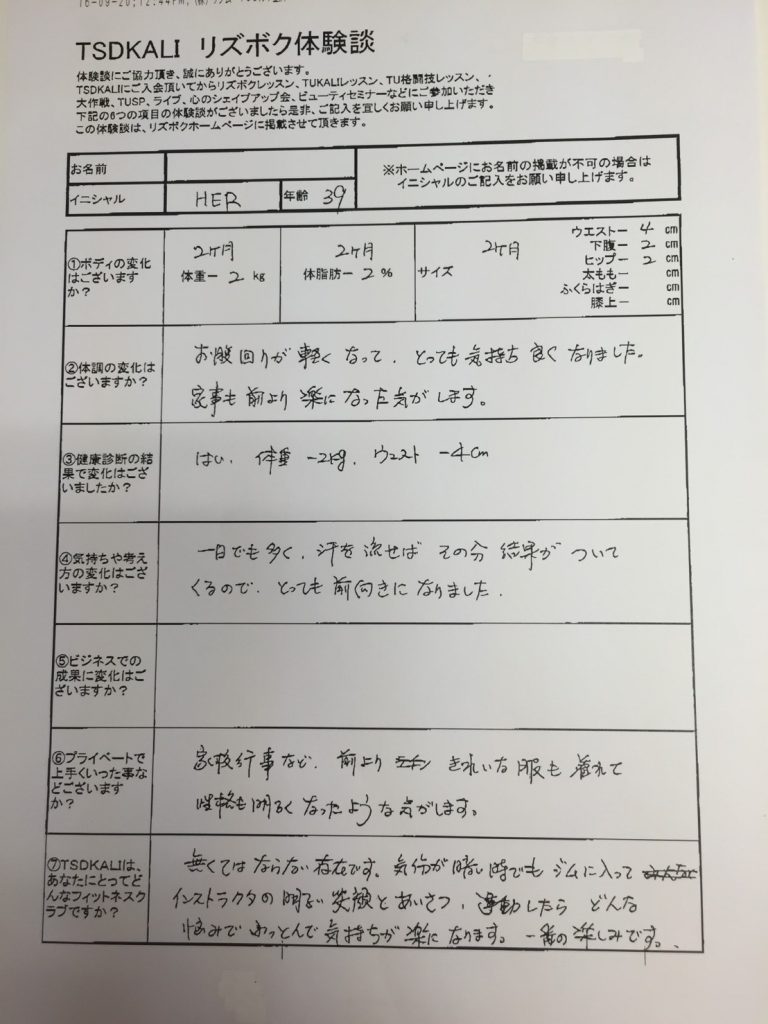 16-09-20;12:44PM;
TSDKALI リズボク体験談
体験談にご協力頂き、誠にありがとうございます。
TSDKALIにご入会頂いてからリズボクレッスン、TUKALIレッスン、TU格闘技レッスン、・
大作戦、TUSP、ライブ、心のシェイプアップ会、ビューティセミナーなどにご参加いただき
下記の6つの項目の体験談がございましたら是非、ご記入を宜しくお願い申し上げます。
この体験談は、リズボクホームページに掲載させて頂きます。
お名前
※ホームページにお名前の掲載が不可の場合は
イニシャルのご記入をお願い申し上げます。
イニシャル HER 年齢 39
①ボディの変化
はございます
か？
2ヶ月
体重ー 2 kg
2ヶ月
体脂肪ー 2 %
2ヶ月
サイズ
ウエストー 4 cm
下腹ー 2 cm
ヒップー 2 cm
太ももー cm
ふくらはぎー cm
膝上ー cm
②体調の変化は
ございますか？
お腹回りが軽くなって、とっても気持ち良くなりました。
家事も前より楽になった気がします。
③健康診断の結
果で変化はござ
いましたか？
はい、体重 -2kg、ウエスト -4cm
④気持ちや考え
方の変化はござ
いますか？
一日でも多く、汗を流せば その分 結果が ついて
くるので、とっても前向きになりました.
⑤ビジネスでの
成果に変化はご
ざいますか？
⑥プライベートで
上手くいった事な
どございます
か？
家族行事など、前より きれいな服も着れて
性格も明るくなったような気がします。
⑦TSDKALIは、
あなたにとってど
んなフィットネスク
ラブですか？
無くてはならない存在です。気分が暗い時でも ジムに入って
インストラクタの明るい笑顔とあいさつ、運動したら どんな
悩みで ふっとんで気持ちが楽になります。一番の楽しみです。